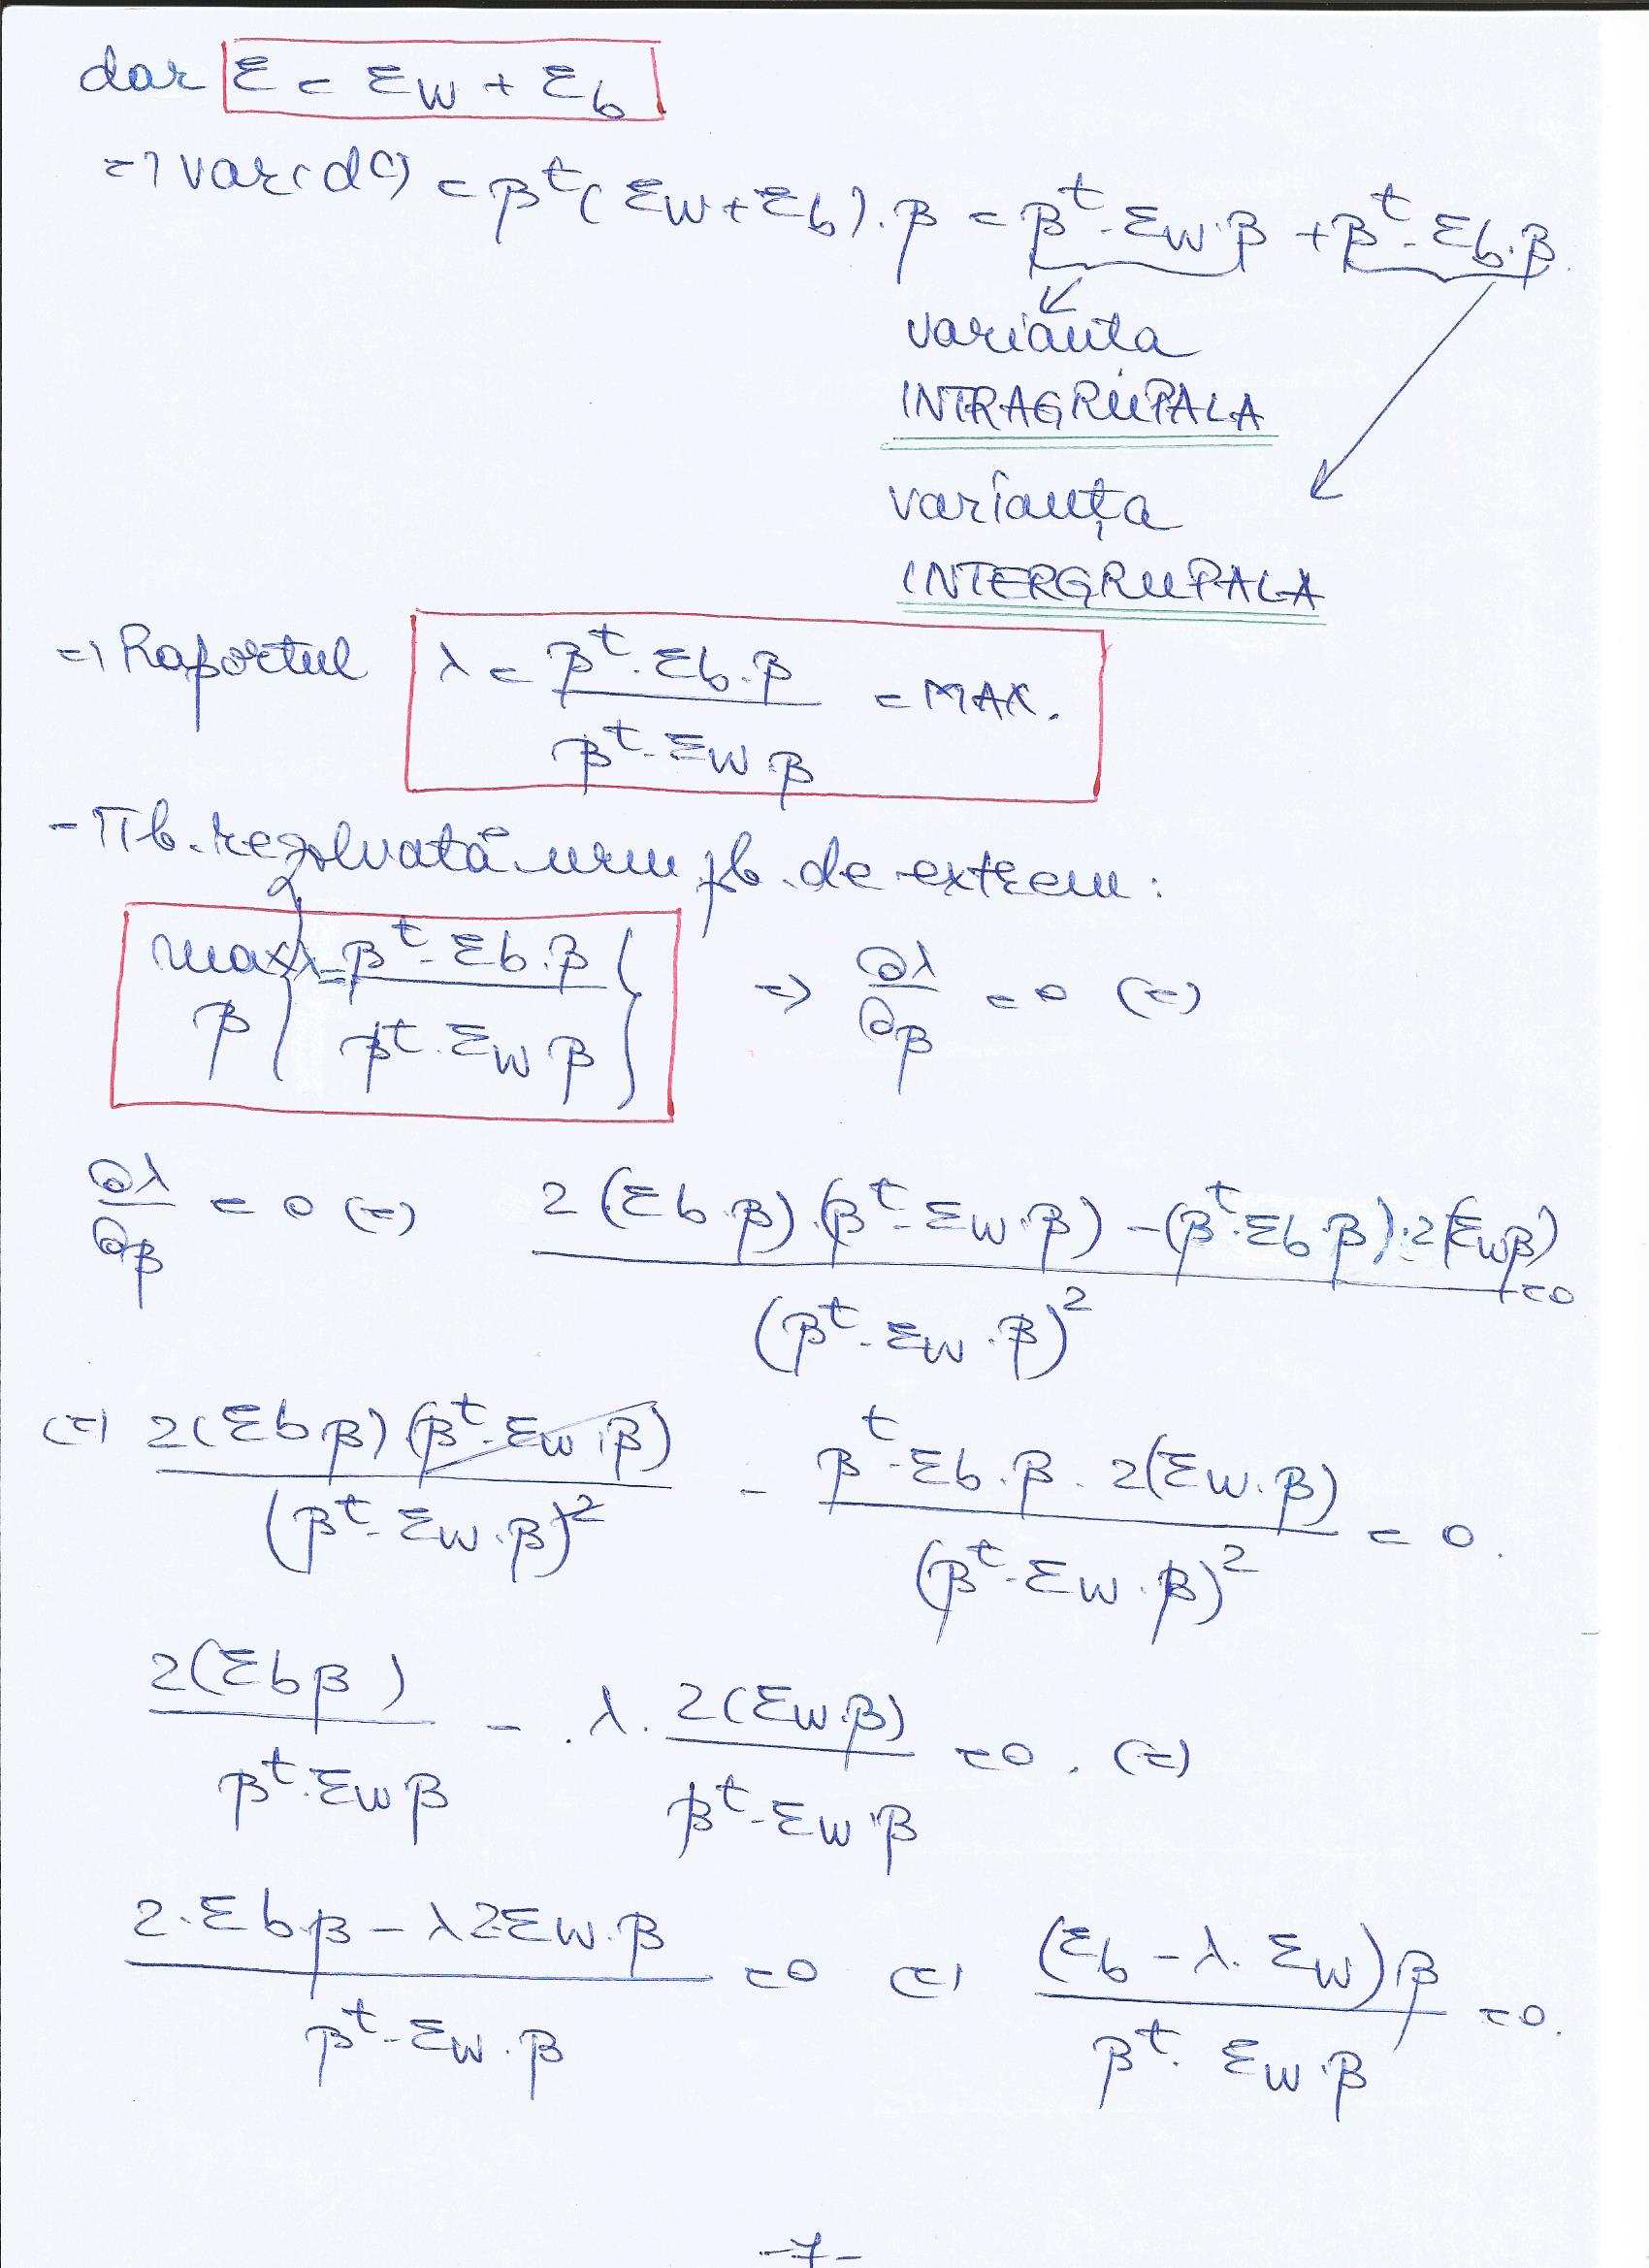 dar Σ = Σw + Σb
=> var(d(1)) = β^t(Σw + Σb)·β = β^t·Σw·β + β^t·Σb·β
varianta
INTRAGRUPALA
varianța
INTERGRUPALA
=> Raportul λ = (β^t·Σb·β) / (β^t·Σw·β) = MAX.
- Tb. rezolvată urm pb. de extrem:
max β { λ = (β^t·Σb·β) / (β^t·Σw β) } => ∂λ/∂β = 0 (=)
∂λ/∂β = 0 (=) (2(Σb·β)·(β^t·Σw·β) - (β^t·Σb·β)·2(Σwβ)) / (β^t·Σw·β)^2 = 0
(=) 2(Σbβ)(β^t·Σw·β) / (β^t·Σw·β)^2 - β^t·Σb·β·2(Σw·β) / (β^t·Σw·β)^2 = 0.
2(Σbβ) / (β^t·Σwβ) - λ·2(Σw·β) / (β^t·Σw·β) = 0. (=)
(2·Σb·β - λ2Σw·β) / (β^t·Σw·β) = 0 (=) (Σb - λ·Σw)β / (β^t·Σw·β) = 0.
-7-